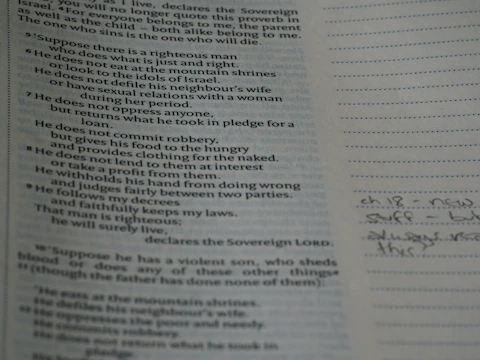 as I live, declares the Sovereign
you will no longer quote this proverb in
Israel. ⁴ For everyone belongs to me, the parent
as well as the child – both alike belong to me.
The one who sins is the one who will die.
⁵ 'Suppose there is a righteous man
who does what is just and right.
⁶ He does not eat at the mountain shrines
or look to the idols of Israel.
He does not defile his neighbour's wife
or have sexual relations with a woman
during her period.
⁷ He does not oppress anyone,
but returns what he took in pledge for a
loan.
He does not commit robbery,
but gives his food to the hungry
and provides clothing for the naked.
⁸ He does not lend to them at interest
or take a profit from them.
He withholds his hand from doing wrong
and judges fairly between two parties.
⁹ He follows my decrees
and faithfully keeps my laws.
That man is righteous;
he will surely live,
declares the Sovereign LORD.
¹⁰ 'Suppose he has a violent son, who sheds
blood or does any of these other things
¹¹ (though the father has done none of them):
'He eats at the mountain shrines.
He defiles his neighbour's wife.
¹² He oppresses the poor and needy.
He commits robbery.
He does not return what he took in
pledge.
ch 18 – new
stuff –